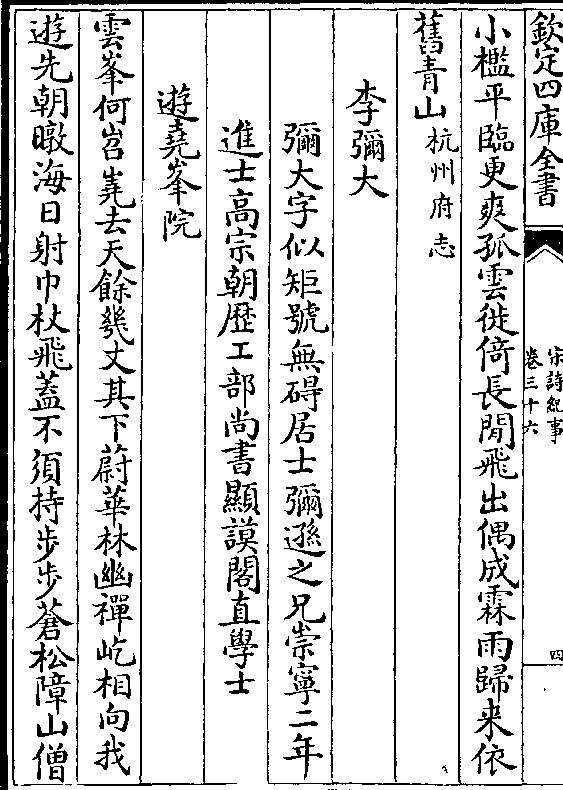 欽定四庫全書
宋詩紀事
卷三十六
四
小檻平臨更爽孤雲徙倚長閒飛出偶成霖雨歸来依
舊青山杭州府志
李彌大
彌大字似矩號無碍居士彌遜之兄崇寧二年
進士高宗朝歴工部尚書顯謨閣直學士
遊堯峯院
雲峯何岧嶤去天餘幾丈其下蔚華林幽禪屹相向我
遊先朝暾海日射巾杖飛蓋不須持步步蒼松障山僧